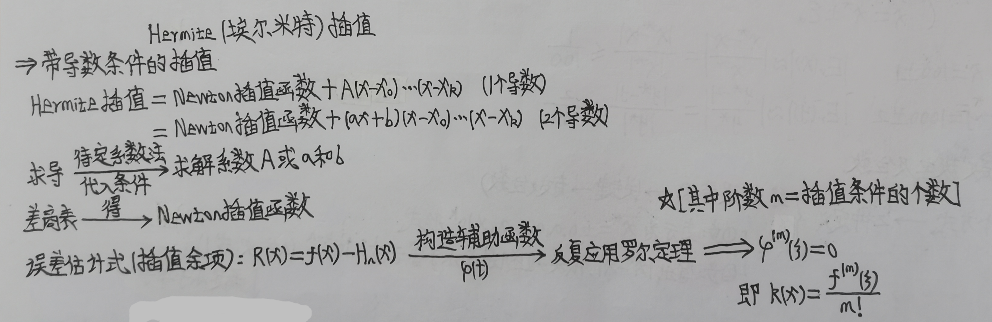 Hermite(埃尔米特)插值
⇒带导数条件的插值
Hermite插值=Newton插值函数+A(x-x₀)…(x-xₖ) (1个导数)
=Newton插值函数+(ax+b)(x-x₀)…(x-xₖ) (2个导数)
求导 待定系数法 代入条件 → 求解系数A或a和b
差商表 得 → Newton插值函数
☆[其中阶数m=插值条件的个数]
误差估计式(插值余项): R(x)=f(x)-Hₙ(x) 构造辅助函数 φ(t) → 反复应用罗尔定理 ⟹ φ⁽ᵐ⁾(ξ)=0
即 k(x)=f⁽ᵐ⁾(ξ)/m!